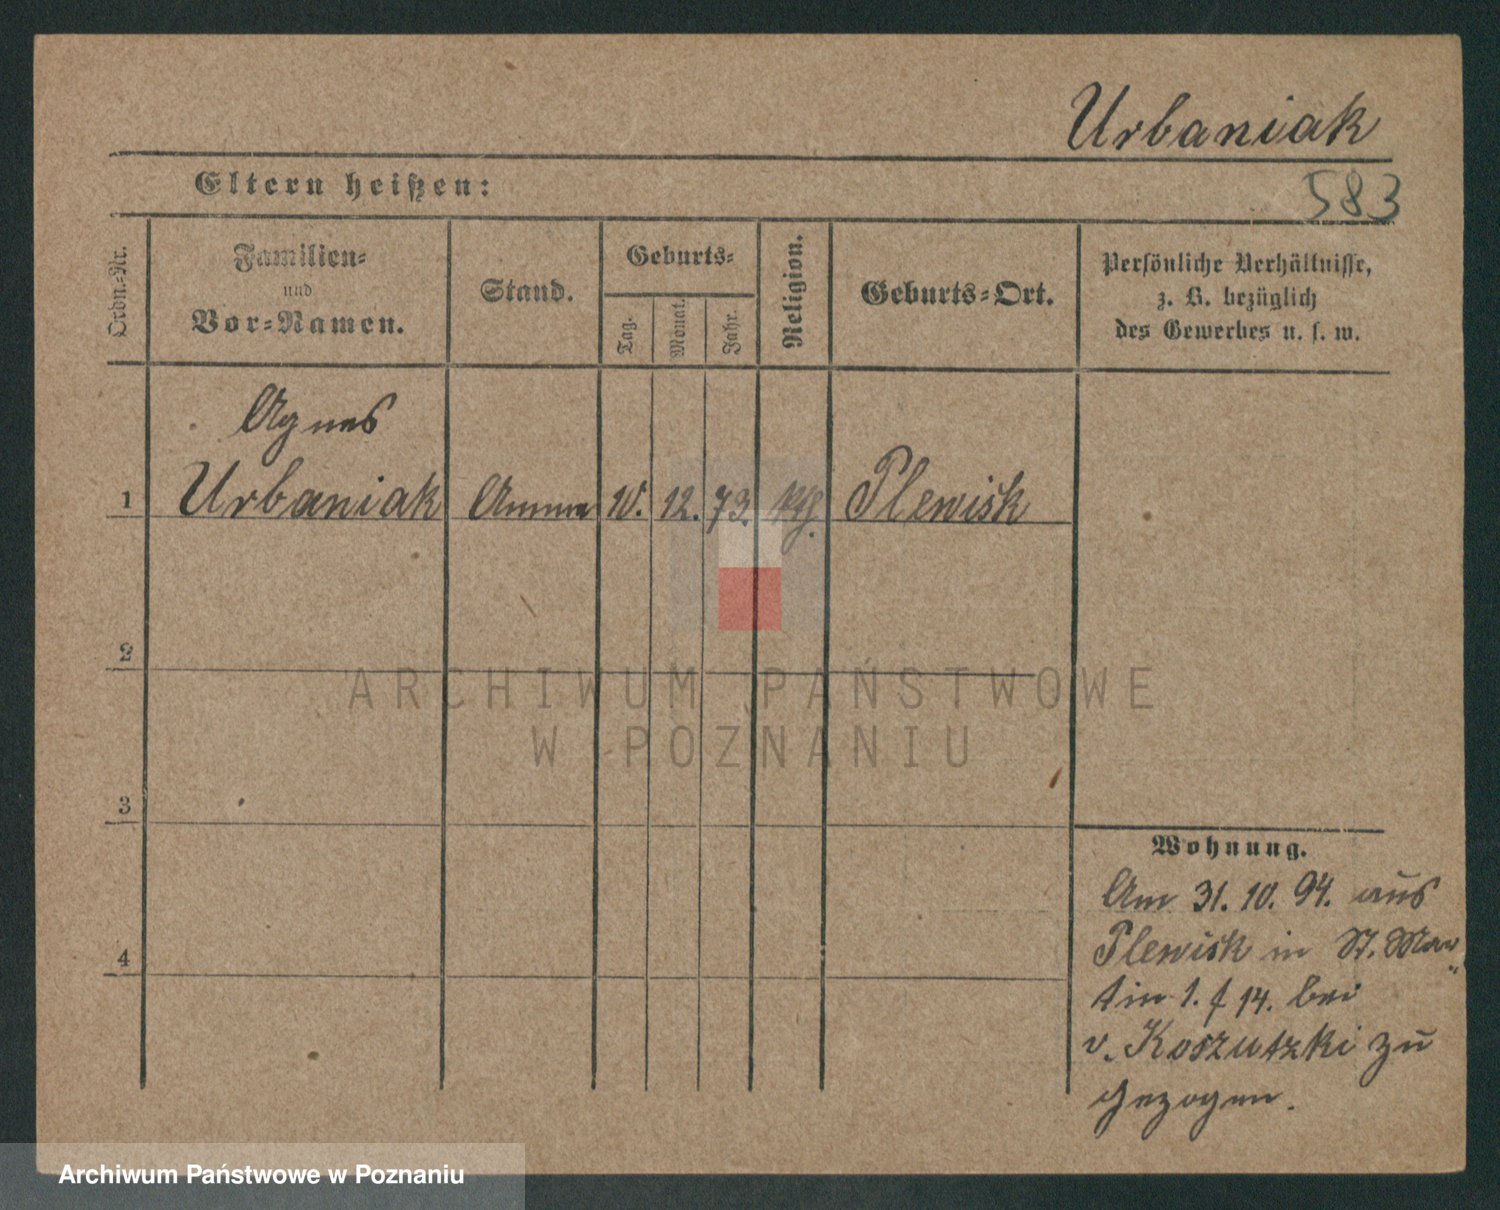 Urbaniak
Eltern heißen:
583
Ordn.-Nr.
Familien-
und
Vor-Namen.
Stand.
Geburts-
Tag.
Monat.
Jahr.
Religion.
Geburts-Ort.
Persönliche Verhältnisse,
z. B. bezüglich
des Gewerbes u. s. w.
Agnes
1 Urbaniak Amme 10. 12. 73. kth. Plewisk
2
ARCHIWUM PAŃSTWOWE
W POZNANIU
3
Wohnung.
Am 31. 10. 94. aus
Plewisk in St. Mar
4
tin 1. f 14. bei
v. Koszutzki zu
gezogen.
Archiwum Państwowe w Poznaniu